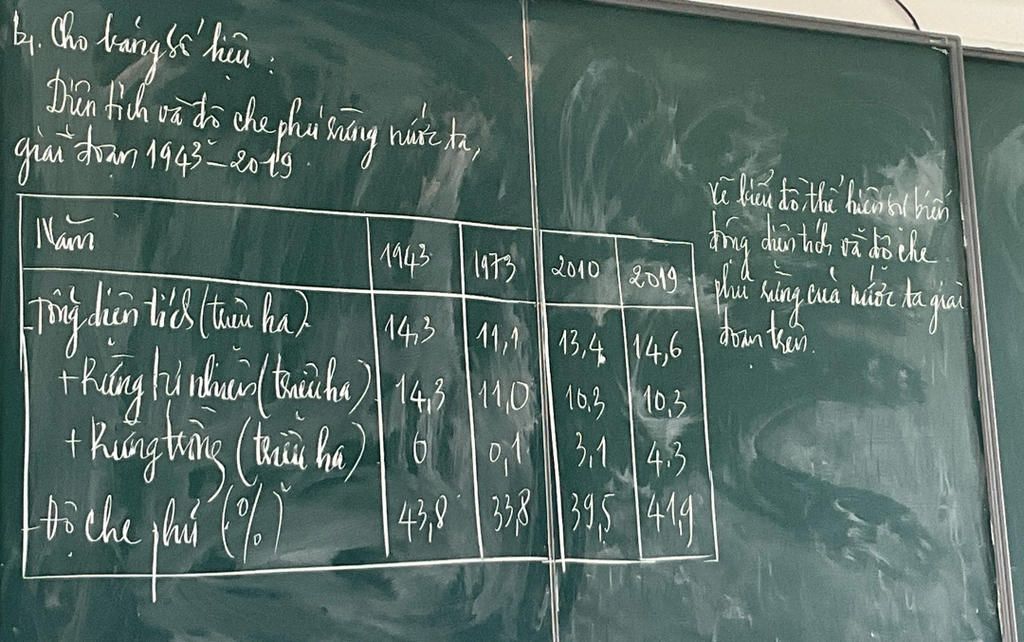 b, Cho bảng số liệu :
Diện tích và độ che phủ rừng nước ta,
giai đoạn 1943 - 2019.
Năm 1943 1973 2010 2019
- Tổng diện tích (triệu ha) 14,3 11,1 13,4 14,6
+ Rừng tự nhiên (triệu ha) 14,3 11,0 10,3 10,3
+ Rừng trồng (triệu ha) 0 0,1 3,1 4,3
- Độ che phủ (%) 43,8 33,8 39,5 41,9
Vẽ biểu đồ thể hiện sự biến
động diện tích và độ che
phủ rừng của nước ta giai
đoạn trên.